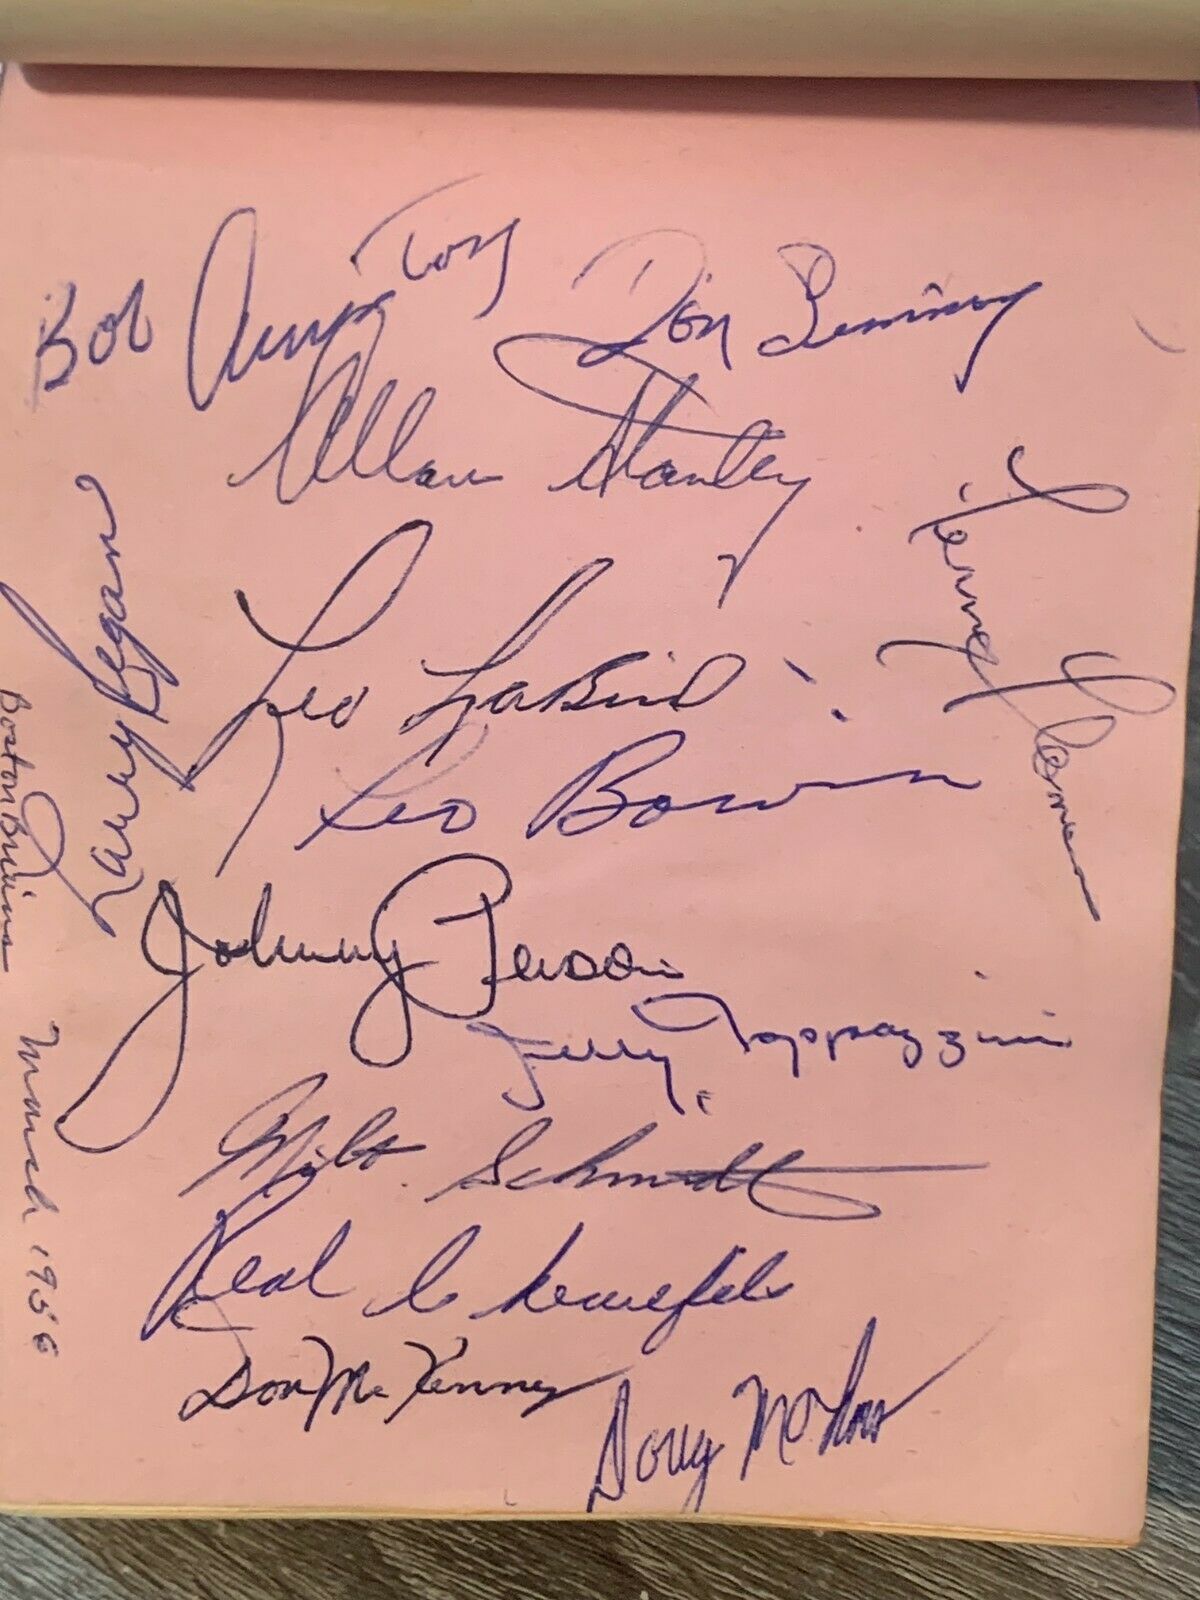 Bob Armstrong
Don Simmons
Allan Stanley
Larry Regan
Leo LaBine
Leo Boivin
Johnny Peirson
Jerry Toppazzini
Milt Schmidt
Real
Don McKenney
Doug Mohns
Boston Bruins March 1956